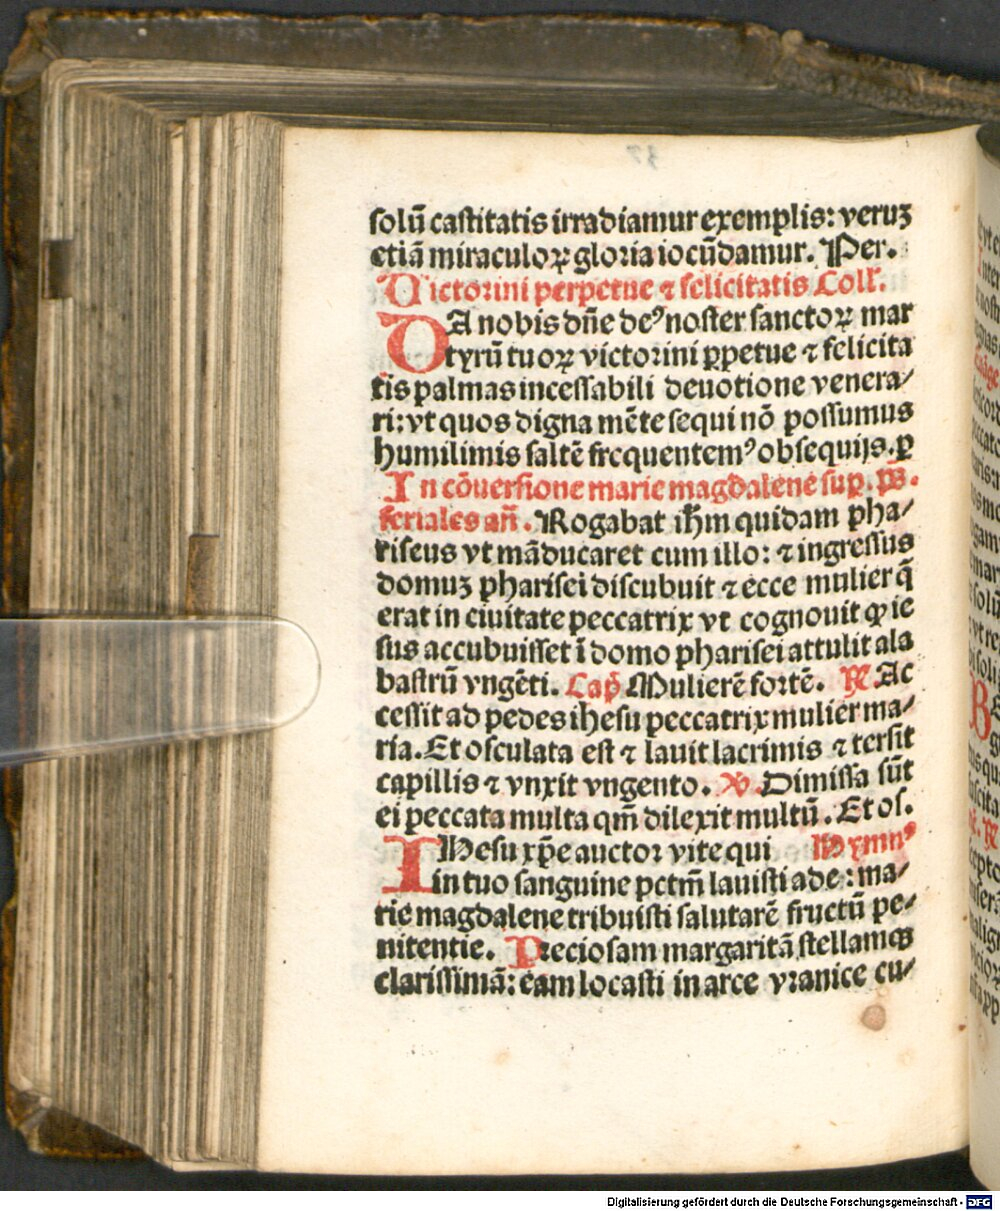 solū castitatis irradiamur exemplis: veruꝫ
etiā miraculoꝝ gloria iocūdamur. Per.
Victorini perpetue ⁊ felicitatis Coll'.
DA nobis dn̄e de⁹ noster sanctoꝝ mar
tyrū tuoꝝ victorini ꝑpetue ⁊ felicita
tis palmas incessabili deuotione venera⸗
ri: vt quos digna mēte sequi nō possumus
humilimis saltē frequentem⁹ obsequijs. ꝑ
In cōuersione marie magdalene sup. ps.
feriales an̄. Rogabat ih̄m quidam pha⸗
riseus vt māducaret cum illo: ⁊ ingressus
domuꝫ pharisei discubuit ⁊ ecce mulier q̄
erat in ciuitate peccatrix vt cognouit ꝙ ie
sus accubuisset ī domo pharisei attulit ala
bastrū vngēti. Cap̄ Mulierē fortē. ℞. Ac
cessit ad pedes ihesu peccatrix mulier ma⸗
ria. Et osculata est ⁊ lauit lacrimis ⁊ tersit
capillis ⁊ vnxit vngento. ℣. Dimissa sūt
ei peccata multa qm̄ dilexit multū. Et os.
IHesu xp̄e auctor vite qui Hymn⁹
in tuo sanguine pctm̄ lauisti ade: ma⸗
rie magdalene tribuisti salutarē fructū pe⸗
nitentie. Preciosam margaritā stellamqꝫ
clarissimā: eam locasti in arce vranice cu⸗
Digitalisierung gefördert durch die Deutsche Forschungsgemeinschaft - DFG